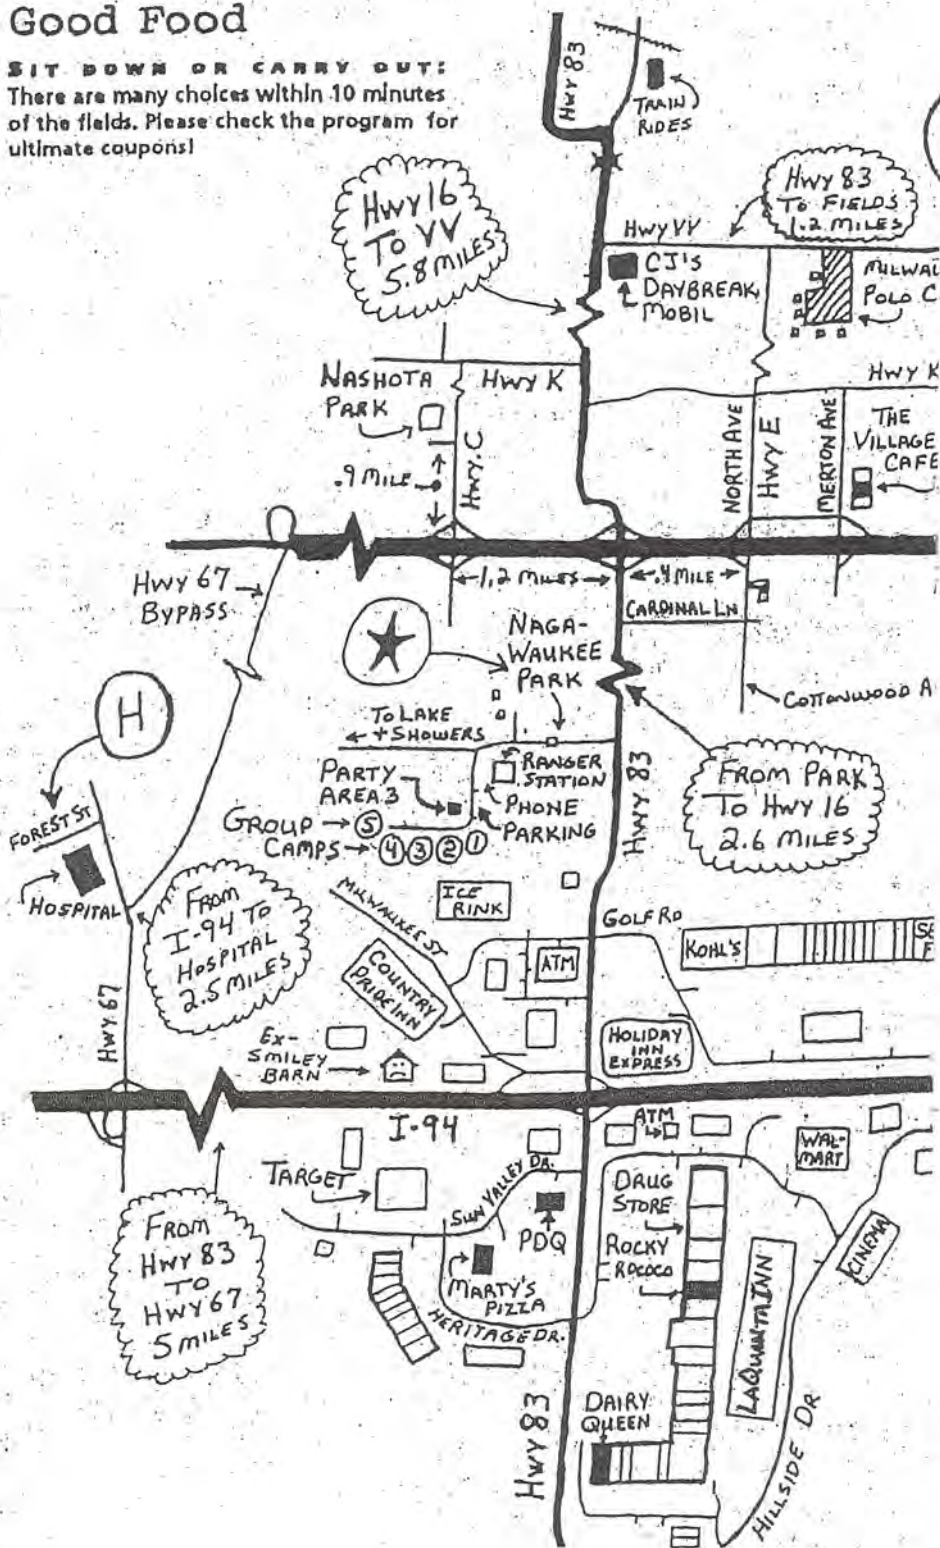 Good Food
SIT DOWN OR CARRY OUT:
There are many choices within 10 minutes
of the fields. Please check the program for
ultimate coupons!
Hwy 83
TRAIN
RIDES
Hwy 16
To VV
5.8 MILES
Hwy 83
To FIELDS
1.2 MILES
Hwy VV
CJ'S
DAYBREAK
MOBIL
MILWAU
POLO C
NASHOTA
PARK
Hwy K
Hwy K
.9 MILE
Hwy. C
NORTH AVE
Hwy E
MERTON AVE
THE
VILLAGE
CAFE
Hwy 67
BYPASS
1.2 MILES
.4 MILE
CARDINAL LN
NAGA-
WAUKEE
PARK
COTTONWOOD A
H
To LAKE
+ SHOWERS
RANGER
STATION
PARTY
AREA 3
PHONE
PARKING
GROUP
CAMPS
5
4 3 2 1
Hwy 83
FROM PARK
To Hwy 16
2.6 MILES
FOREST ST
HOSPITAL
FROM
I-94 TO
HOSPITAL
2.5 MILES
ICE
RINK
MILWAUKEE ST
GOLF RD
KOHL'S
SE
F
ATM
COUNTRY
PRIDE INN
Hwy 67
EX-
SMILEY
BARN
HOLIDAY
INN
EXPRESS
I-94
ATM
WAL-
MART
TARGET
SUN VALLEY DR.
DRUG
STORE
PDQ
ROCKY
ROCOCO
CINEMA
FROM
Hwy 83
TO
Hwy 67
5 MILES
MARTY'S
PIZZA
HERITAGE DR.
LAQUINTA INN
Hwy 83
DAIRY
QUEEN
HILLSIDE DR